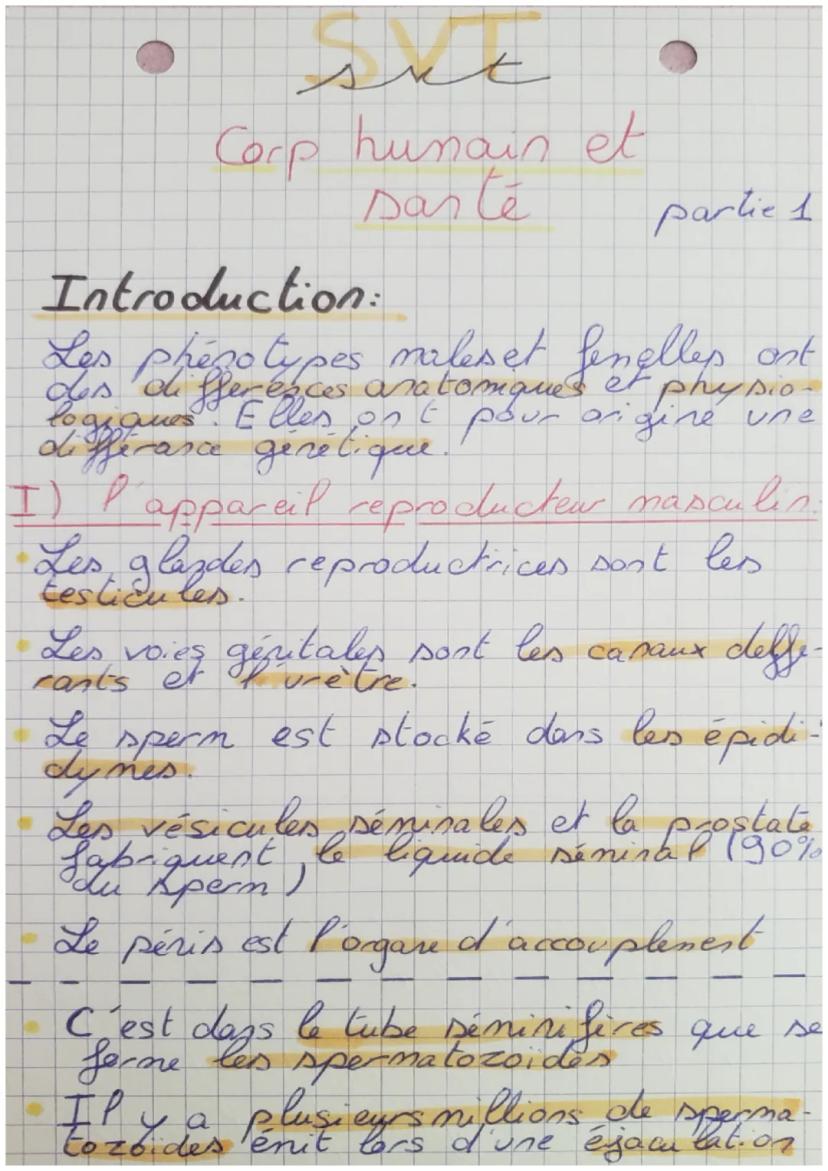 SVT
svt
Corp humain et
santé
partie 1
Introduction:
Les phénotypes males et femelles ont
des differences anatomiques et physio-
logiques. Elles ont pour origine une
différance génétique.
I) l'appareil reproducteur masculin.
• Les glandes reproductrices sont les
testicules.
• Les voies génitales sont les canaux deffe-
rants et l'urètre.
• Le sperm est stocké dans les épidi-
dymes.
• Les vésicules séminales et la prostate
fabriquent le liquide séminal (90%
du sperm)
• Le pénis est l'organe d'accouplement
• C'est dans le tube séminifères que se
forme les spermatozoides
• Il y a plusieurs millions de sperma-
tozoïdes émit lors d'une éjaculation